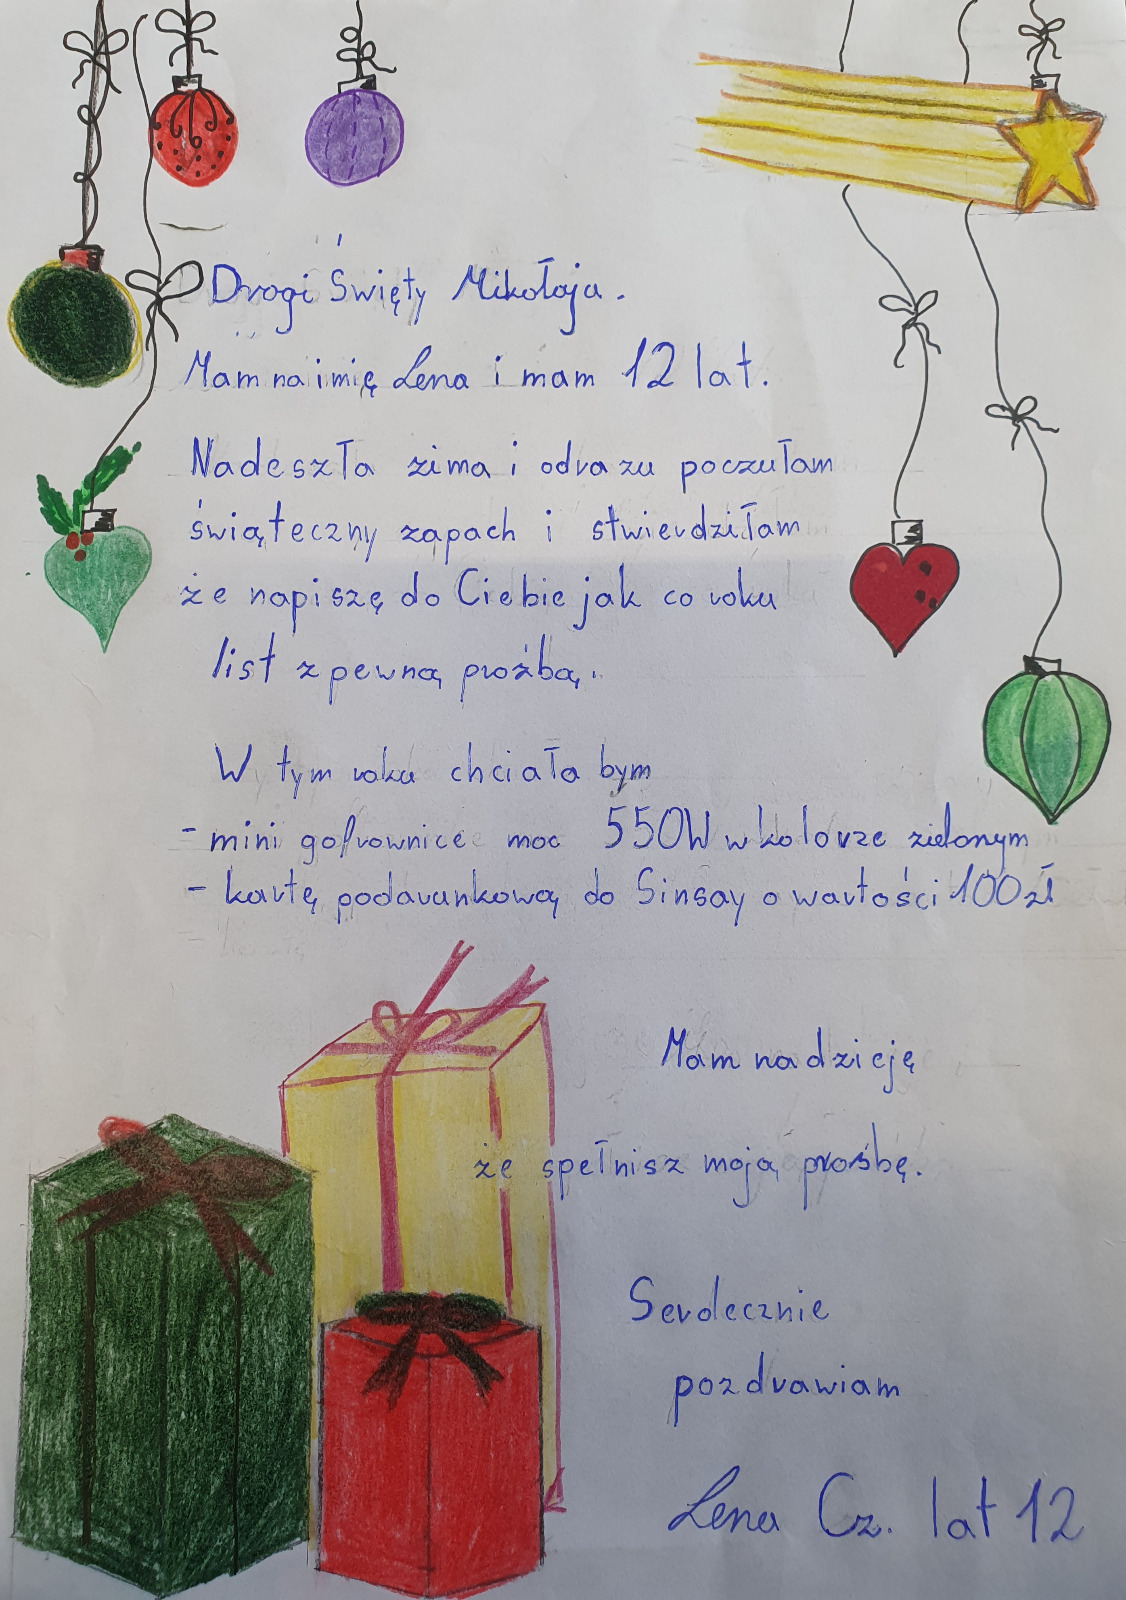 Drogi Święty Mikołaju.
Mam na imię Lena i mam 12 lat.
Nadeszła zima i odrazu poczułam
świąteczny zapach i stwierdziłam
że napiszę do Ciebie jak co roku
list z pewną proźbą.
W tym roku chciała bym
- mini gofrownice moc 550W w kolorze zielonym
- kartę podarunkową do Sinsay o wartości 100zł
Mam nadzieję
że spełnisz moją prośbę.
Serdecznie
pozdrawiam
Lena Cz. lat 12